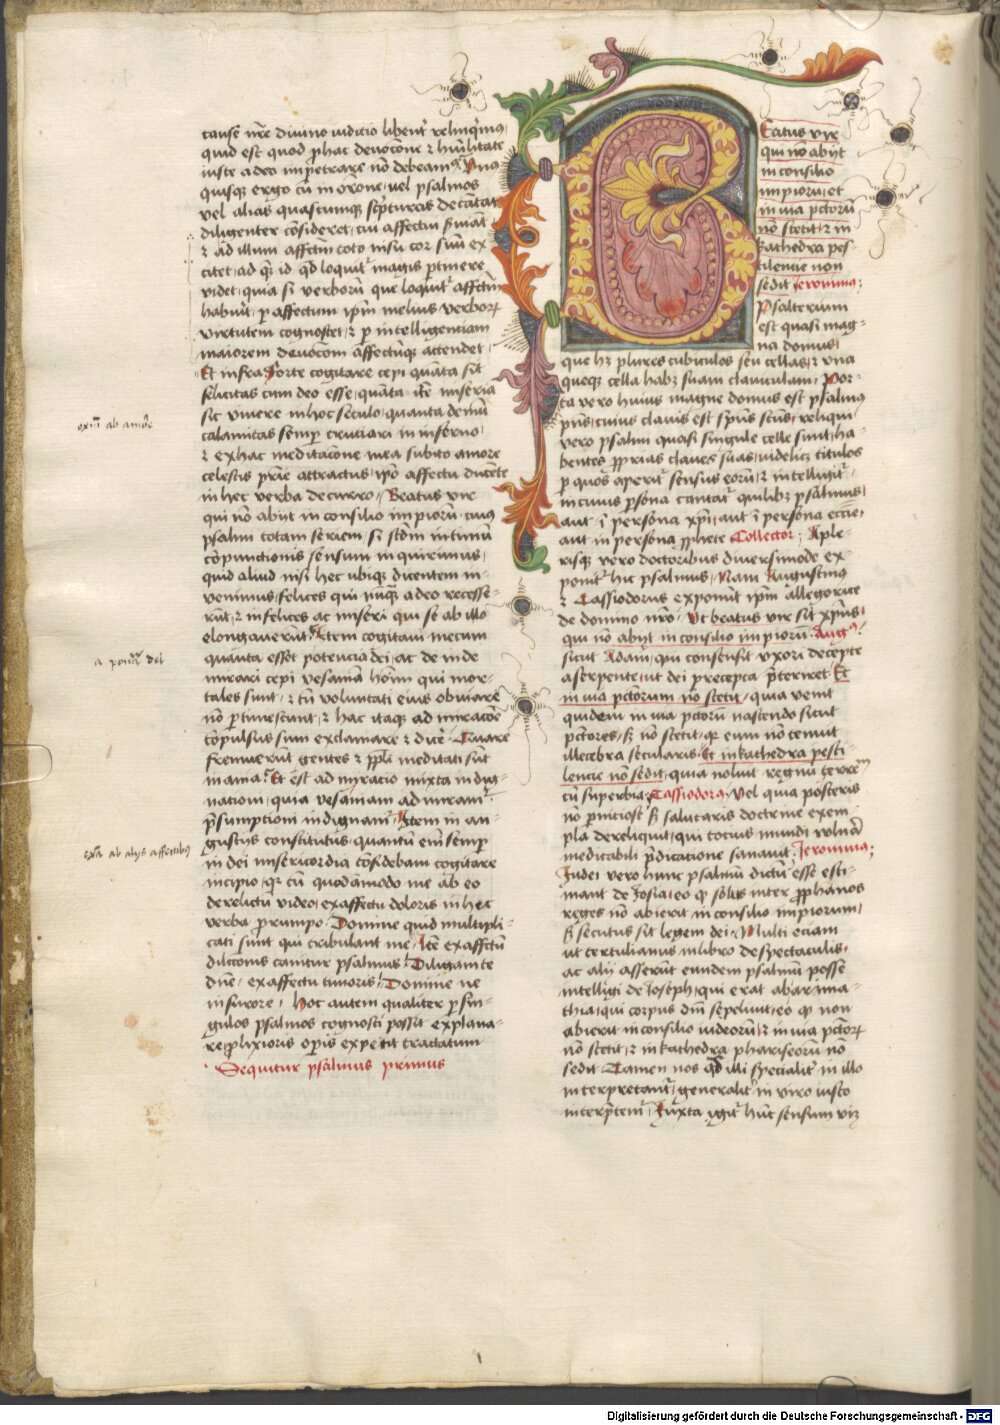 cause nr̄e diuino iudicio libent᷑ relinq̄m⁹
quid est quod ꝑ hac deuocōne ⁊ hūilitate
iuste a deo impetrare nō debeam⁹ Vnus
quisq; ergo cū in orōne uel psalmos
vel alias quascumq; sc̄pturas decātat
diligenter cōsideret cui affectui ſuiāt
⁊ ad illum affc̄tm toto nisu cor suū ex
citet ad q̄ id qd̄ loquit᷑ magis ꝑtinere
videt quia si verborū que loquit᷑ affectū
habuit ꝑ affectum ip̄m melius verboꝝ
virtutem cognoscet ⁊ ꝑ intelligenciam
maiorem deuocōm affectūq; attendet
Et infra Forte cogitare cepi quāta sit
felicitas cum deo esse quāta itē miseria
sic viuere in hoc seculo quanta demū
calamitas semꝑ cruciari in inferno
⁊ ex hac meditacōne mea subito amore
celestis pr̄ie attractus ip̄o affectu ducēte
in hec verba decurro Beatus vir
qui nō abijt in consilio impiorū cuius
psalmi totam seriem si scdm intimū
cōpunctionis sensum inquirimus
quid aliud nisi hec ubiq; dicentem in-
venimus felices qui nūq̄ a deo recesse-
rūt ⁊ infelices ac miseri qui se ab illo
elongauerūt Item cogitaui mecum
quanta esset potencia dei ac deinde
mirari cepi vesaniā hōim qui mor-
tales sunt ⁊ tn̄ voluntati eius obuiare
nō ꝑtimescunt ⁊ hac itaq; admiracōe
cōpulsus sum exclamare ⁊ dice᷑ Quare
fremuerūt gentes ⁊ ppl̄i meditati sūt
inania Et est admiracio mixta indig-
nacioni quia vesaniam admiram᷑
p̄sumptioni indignam᷑ Item in an-
gustijs constitutus quantū em̄ semꝑ
in dei misericordia cōfidebam cogitare
incipio qr cū quodāmodo me ab eo
derelictū video ex affectu doloris in hec
verba prumpo Domine quid multipli-
cati sunt qui tribulant me Itē ex affectū
dilccōnis canitur psalmus Diligam te
dn̄e ex affectu timoris Domine ne
in furore Hoc autem qualiter ꝑ sin-
gulos psalmos cognosci possit explana-
re ꝓlixioris oꝑis expetit tractatum
Sequitur psalmus primus
oriū ab amōe
a potn̄ia dei
exia ab alijs affectibus
Beatus vir
qui nō abijt
in consilio
impiorū et
in uia pctorū
nō stetit ⁊ in
kathedra pes-
tilencie non
sedit Jeronimus
Psalterium
est quasi mag-
na domus
que h3 plures cubiculos seu cellas ⁊ vna
queq; cella hab3 suam clauiculam Por-
ta vero huius magne domus est psalmus
p̄mus cuius clauis est sp̄us scūs reliqui
vero psalmi quasi singule celle sunt ha-
bentes ꝓprias claues suas videlic3 titulos
ꝑ quos aperit᷑ sensus eorū ⁊ intelligit᷑
in cuius ꝑsona cantat᷑ quilib3 psalmus
aut ī persona xp̄i aut ī persona ecc̄ie
aut in persona ꝓphete Collector A ple-
risq; vero doctoribus diuersimode ex-
ponit᷑ hic psalmus Nam Augustinus
⁊ Cassiodorus exponūt ip̄m allegorice
de domino nr̄o Vt beatus vir sit xp̄us
qui nō abijt in consilio impiorū Aug⁹
sicut Adam qui consensit vxori decepte
a serpente ut dei precepta p̄teriret Et
in uia pctorum nō stetit quia venit
quidem in uia pctorū nascendo sicut
pctores sʒ nō stetit qr eum nō tenuit
illecebra secularis Et in kathedra pesti-
lencie nō sedit quia noluit regnū terrenū
cū superbia Cassiodorus Vel quia posteris
nō perniciosē sʒ salutaris doctrine exem-
pla dereliquit qui tocius mundi vulnera
medicabili p̄dicatione sanauit Jeronimus
Judei vero hunc psalmū dictū esse esti-
mant de Josia eo qd solus inter ꝓphanos
reges nō abierit in consilio impiorum
sʒ secutus sit legem dei Multi eciam
ut tertulianus in libro de spectaculis
ac alij asserūt eundem psalmū posse
intelligi de Joseph qui erat ab arima-
thia qui corpus dn̄i sepeliuit eo qd non
abierit in consilio iudeorū ⁊ in uia pctoꝝ
nō stetit ⁊ in kathedra phariseorū nō
sedit Tamen nos qd illi specialit᷑ in illo
interpretant᷑ generalit᷑ in viro iusto
interp̄tem᷑ Juxta igit᷑ hūc sensum viʒ
Digitalisierung gefördert durch die Deutsche Forschungsgemeinschaft - DFG